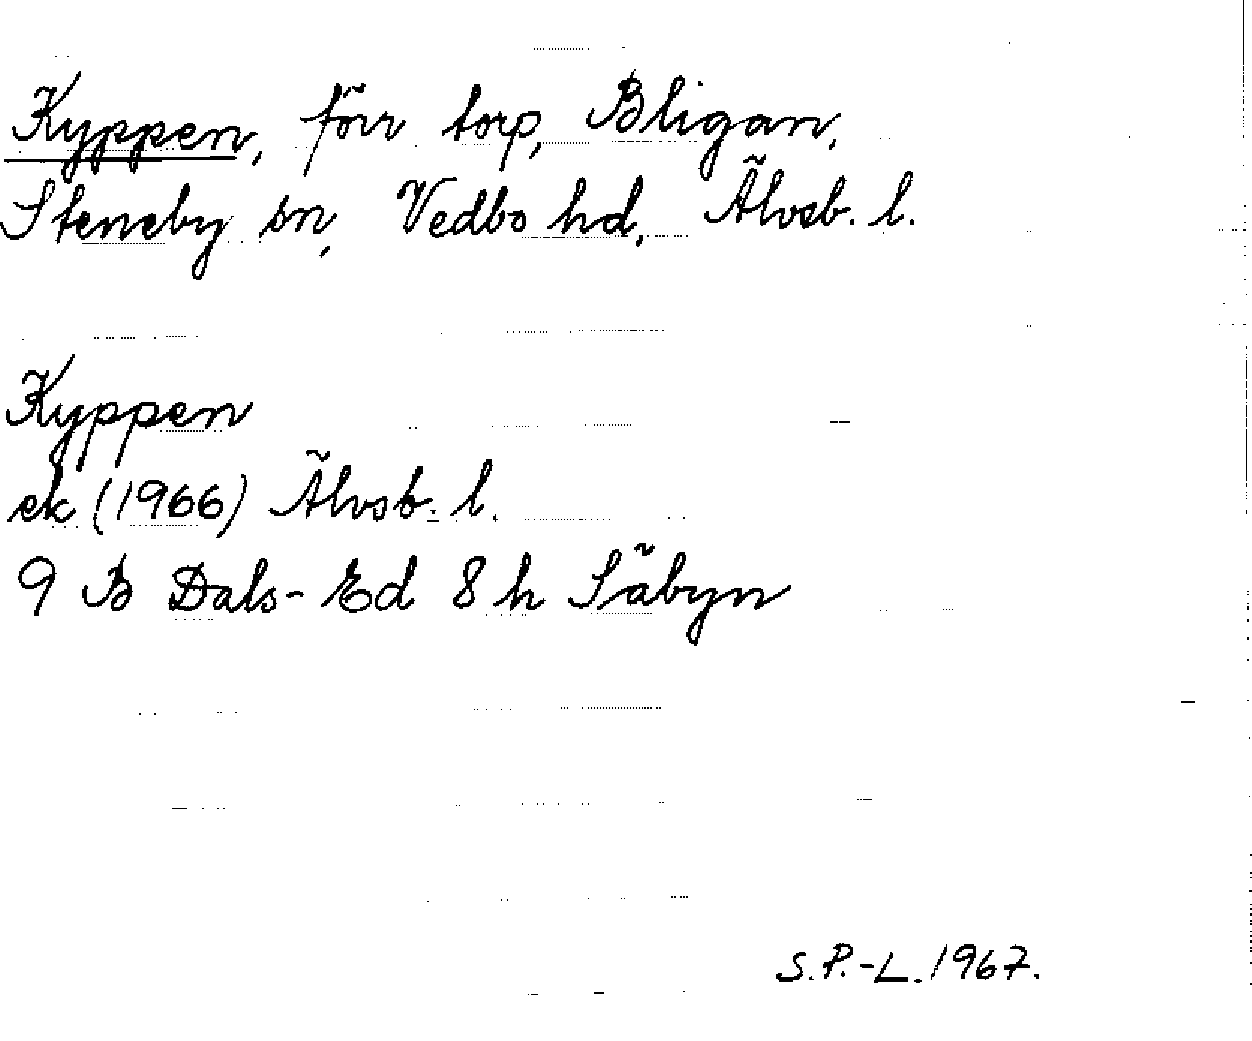 Kyppen, förr torp, Bligan,
Steneby sn, Vedbo hd, Älvsb. l.
Kyppen
ek (1966) Älvsb. l.
9 B Dals-Ed 8 h Säbyn
S.P.-L. 1967.